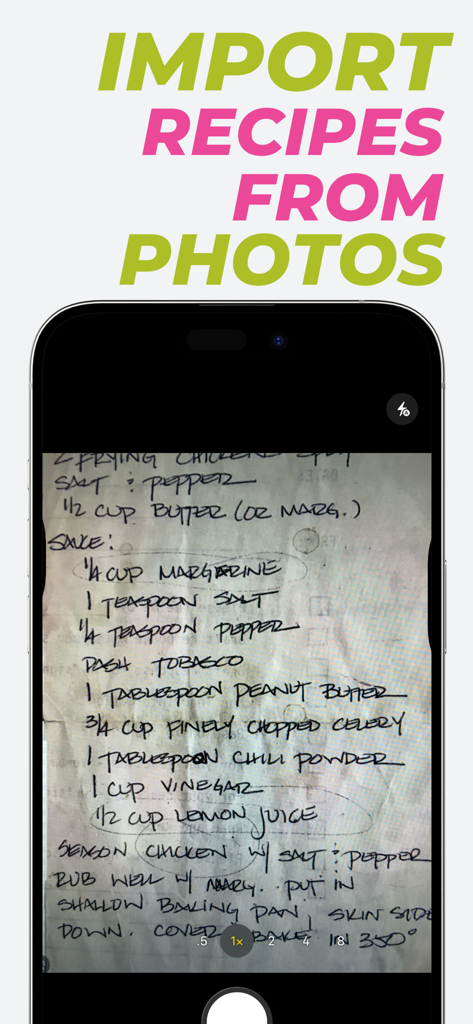 IMPORT
RECIPES
FROM
PHOTOS
2 FRYING CHICKENS SPLIT
SALT & PEPPER
1/2 CUP BUTTER (OR MARG.)
SAUCE:
1/4 CUP MARGARINE
1 TEASPOON SALT
1/4 TEASPOON PEPPER
DASH TOBASCO
1 TABLESPOON PEANUT BUTTER
3/4 CUP FINELY CHOPPED CELERY
1 TABLESPOON CHILI POWDER
1 CUP VINEGAR
1/2 CUP LEMON JUICE
SEASON CHICKEN W/ SALT & PEPPER
RUB WELL W/ MARG. PUT IN
SHALLOW BAKING PAN, SKIN SIDE
DOWN. COVER BAKE IN 350°
.5 1× 2 4 8